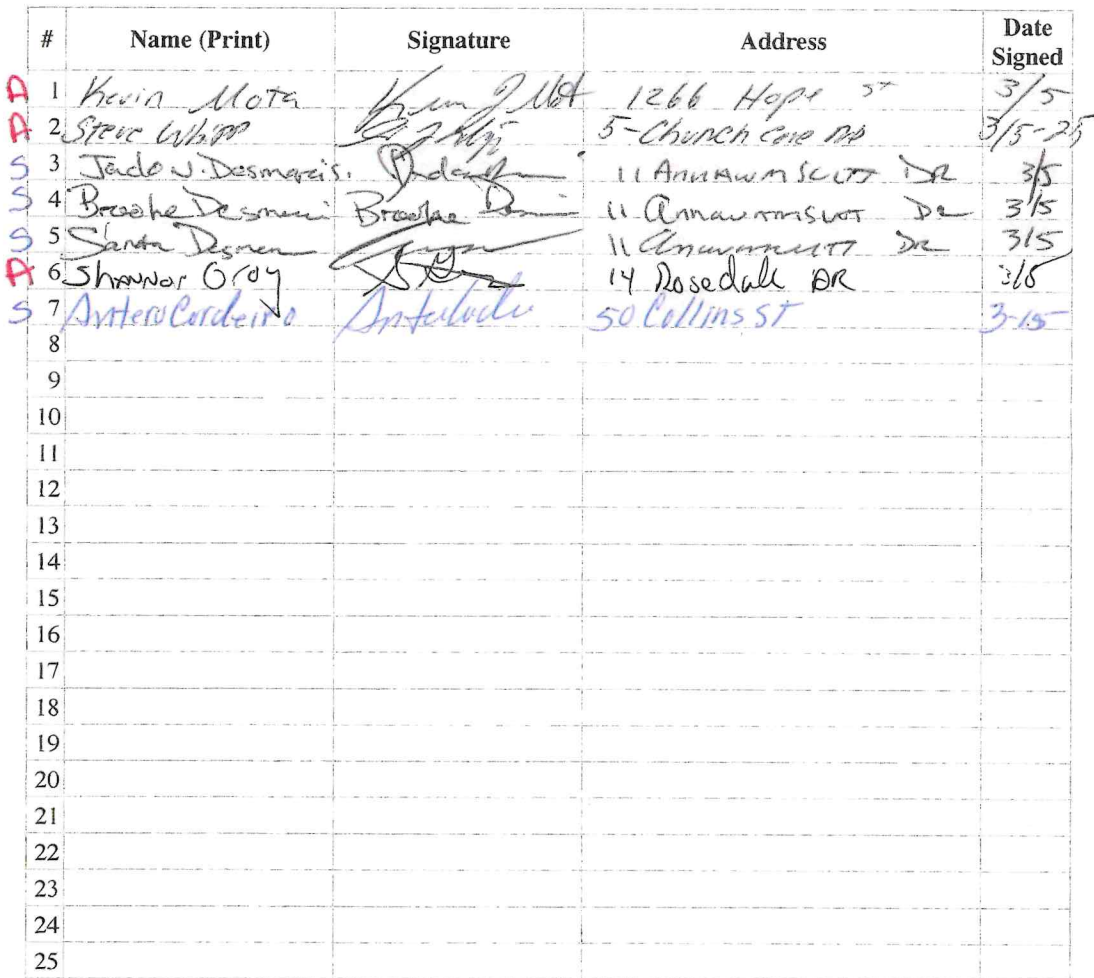 # Name (Print) Signature Address Date Signed
A 1 Kevin Mota Kevin J Mota 1266 Hope ST 3/5
A 2 Steve Whipp 5-Church Cove Rd 3/5-25
S 3 Jade J. Desmarais. 11 Annawamscutt DR 3/5
S 4 Brooke Desmarai Brooke 11 Annawamscutt DR 3/5
S 5 Desmarai 11 Annawamscutt DR 3/5
A 6 Shannon Gray 14 Rosedale DR 3/5
S 7 Antero Cordeiro 50 Collins ST 3-15
8
9
10
11
12
13
14
15
16
17
18
19
20
21
22
23
24
25